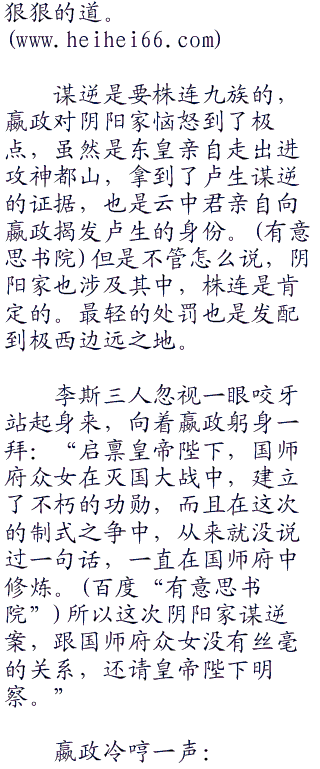 狠狠的道。
(www.heihei66.com)
谋逆是要株连九族的，
嬴政对阴阳家恼怒到了极
点，虽然是东皇亲自走出进
攻神都山，拿到了卢生谋逆
的证据，也是云中君亲自向
嬴政揭发卢生的身份。(有意
思书院)但是不管怎么说，阴
阳家也涉及其中，株连是肯
定的。最轻的处罚也是发配
到极西边远之地。
李斯三人忽视一眼咬牙
站起身来，向着嬴政躬身一
拜：“启禀皇帝陛下，国师
府众女在灭国大战中，建立
了不朽的功勋，而且在这次
的制式之争中，从来就没说
过一句话，一直在国师府中
修炼。(百度“有意思书
院”)所以这次阴阳家谋逆
案，跟国师府众女没有丝毫
的关系，还请皇帝陛下明
察。”
嬴政冷哼一声：